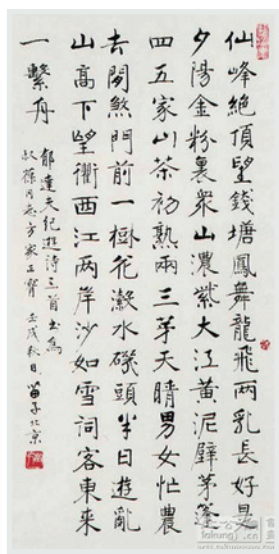 仙峰絶頂望錢塘鳳舞龍飛两乳長好是
夕陽金粉裏衆山濃紫大江黄泥壁茅蓬
四五家山茶初熟兩三芽天晴男女忙農
去閒煞門前一樹花瀫水磯頭半日遊亂
山高下望衢西江两岸沙如雪詞客東来
一繫舟
郁達夫紀遊詩三首書為
葆同志方家正 壬戌秋日苗子北京